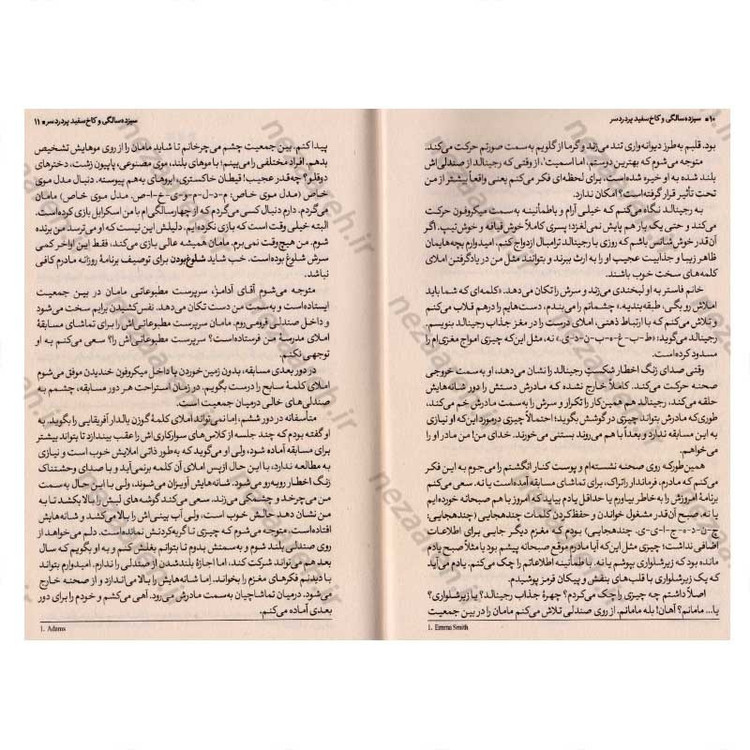 ۱۰ ■ سیزده‌سالگی و کاخ سفید پردردسر
بود. قلبم به‌طرز دیوانه‌واری تند می‌زند و گرما از گلویم به‌سمت صورتم حرکت می‌کند.
متوجه می‌شوم که بهترین دوستم، اما اسمیت۱، از وقتی که رجینالد از صندلی‌اش
بلند شده به او خیره شده است. برای لحظه‌ای فکر می‌کنم یعنی واقعاً بیشتر از من
تحت تأثیر قرار گرفته است؟ امکان ندارد.
به رجینالد نگاه می‌کنم که خیلی آرام و باطمأنینه به سمت میکروفون حرکت
می‌کند و حتی یک بار هم پایش نمی‌لغزد؛ پسری کاملاً خوش‌قیافه و خوش‌تیپ. اگر
آن‌قدر خوش‌شانس باشم که روزی با رجینالد ترامبال ازدواج کنم، امیدوارم بچه‌هایمان
ظاهر زیبا و جذابیت عجیب او را به ارث ببرند و بتوانند مثل من در یادگرفتن املای
کلمه‌های سخت خوب باشند.
خانم فاستر به او لبخندی می‌زند و سرش را تکان می‌دهد. «کلمه‌ای که شما باید
املاش رو بگی، طبقه‌بندیه.» چشمانم را می‌بندم، دست‌هایم را درهم قلاب می‌کنم
و تلاش می‌کنم که با ارتباط ذهنی، املای درست را در مغز جذاب رجینالد بنویسم.
رجینالد می‌گوید: «ط-ب-غ-ه-ب-ن-د-ی.» نه، مثل این‌که چیزی امواج مغزی‌ام را
مسدود کرده است.
وقتی صدای زنگ اخطار شکستِ رجینالد را نشان می‌دهد، او به سمت خروجی
صحنه حرکت می‌کند. کاملاً خارج نشده که مادرش دستش را دور شانه‌هایش
حلقه می‌کند، رجینالد هم همین کار را تکرار و سرش را به سمت مادرش خم می‌کند،
طوری‌که مادرش بتواند چیزی در گوشش بگوید؛ احتمالاً چیزی درمورد این‌که او نیازی
به این مسابقه ندارد و بعداً با هم می‌روند بستنی می‌خورند. خدای من! من مادر او را
می‌خواهم.
همین‌طورکه روی صحنه نشسته‌ام و پوست کنار انگشتم را می‌جوم به این فکر
می‌کنم که مادرم، فرماندار راتراک، برای تماشای مسابقه آمده است یا نه. سعی می‌کنم
برنامهٔ امروزش را به خاطر بیاورم یا حداقل یادم بیاید که امروز با هم صبحانه خورده‌ایم
یا نه. صبح آن‌قدر مشغول خواندن و حفظ‌کردن کلمات چندهجایی (چندهجایی:
چ-ن-د-ه-ج-ا-ی-ی. چندهجایی) بودم که مغزم دیگر جایی برای اطلاعات
اضافی نداشت؛ چیزی مثل این‌که آیا مادرم موقع صبحانه پیشم بود یا مثلاً صبح یادم
مانده بود که زیرشلواری بپوشم یا نه. با طمأنینه اطلاعاتم را چک می‌کنم. یادم می‌آید
که یک زیرشلواری با قلب‌های بنفش و پیکان قرمز پوشیدم.
اصلاً داشتم چه چیزی را چک می‌کردم؟ چهرهٔ جذاب رجینالد؟ یا زیرشلواری؟
یا... مامانم؟ آهان! بله مامانم. از روی صندلی تلاش می‌کنم مامان را در بین جمعیت
1. Emma Smith
سیزده‌سالگی و کاخ سفید پردردسر ■ ۱۱
پیدا کنم. بین جمعیت چشم می‌چرخانم تا شاید مامان را از روی موهایش تشخیص
بدهم. افراد مختلفی را می‌بینم؛ با موهای بلند، موی مصنوعی، پاپیون زشت، دخترهای
دوقلو؟ چه‌قدر عجیب! قیطان خاکستری، ابروهای به‌هم پیوسته. دنبال مدل موی
خاص (مدل موی خاص: م-د-ل-م-و-ی-خ-ا-ص. مدل موی خاص) مامان
می‌گردم. دارم دنبال کسی می‌گردم که از چهارسالگی‌ام با من اسکرابل بازی کرده است.
البته خیلی وقت است که بازی نکرده‌ایم. دلیلش این نیست که او می‌ترسد من برنده
شوم. من هیچ‌وقت نمی‌برم. مامان همیشه عالی بازی می‌کند، فقط این اواخر کمی
سرش شلوغ بوده است. خب شاید شلوغ‌بودن برای توصیف برنامهٔ روزانه مادرم کافی
نباشد.
متوجه می‌شوم که آقای آدامز۱، سرپرست مطبوعاتی مامان در بین جمعیت
ایستاده است و به سمت من دست تکان می‌دهد. نفس‌کشیدن برایم سخت می‌شود
و داخل صندلی فرومی‌روم. مامان سرپرست مطبوعاتی‌اش را برای تماشای مسابقهٔ
املای مدرسهٔ من فرستاده است؟ سرپرست مطبوعاتی‌اش را؟ سعی می‌کنم به او
توجهی نکنم.
در دور بعدی مسابقه، بدون زمین‌خوردن یا داخل میکروفون خندیدن موفق می‌شوم
املای کلمهٔ سایح را درست بگویم. در زمان استراحت هر دور مسابقه، چشمم به
صندلی‌های خالی درمیان جمعیت است.
متأسفانه در دور ششم، اما نمی‌تواند املای کلمهٔ گوزن یالدار آفریقایی را بگوید. به
او گفته بودم که چند جلسه از کلاس‌های سوارکاری‌اش را عقب بیندازد تا بتواند بیشتر
برای مسابقه آماده شود، ولی او می‌گوید که به‌طور ذاتی املایش خوب است و نیازی
به مطالعه ندارد، با این حال ازپس املای آن کلمه برنمی‌آید و با صدای وحشتناک
زنگ اخطار روبه‌رو می‌شود. شانه‌هایش آویزان می‌شوند، ولی با این حال به سمت
من می‌چرخد و چشمکی می‌زند. سعی می‌کند گوشه‌های لبش را بالا بکشد تا به
من نشان دهد حالش خوب است، ولی آب بینی‌اش را بالا می‌کشد و شانه‌هایش
افتاده است. متوجه می‌شوم که چیزی تا گریه‌کردنش نمانده است. دلم می‌خواهد از
روی صندلی بلند شوم و به‌سمتش بدوم تا بتوانم بغلش کنم و به او بگویم که سال
بعد هم می‌تواند شرکت کند، اما اجازهٔ بلندشدن از صندلی را ندارم. امیدوارم بتواند
با دیدنم فکرهای مغزم را بخواند. اما شانه‌هایش را بالا می‌اندازد و از صحنه خارج
می‌شود. درمیان تماشاچیان به‌سمت مادرش می‌رود. آهی می‌کشم و خودم را برای دور
بعدی آماده می‌کنم.
1. Adams
nezaareh.ir